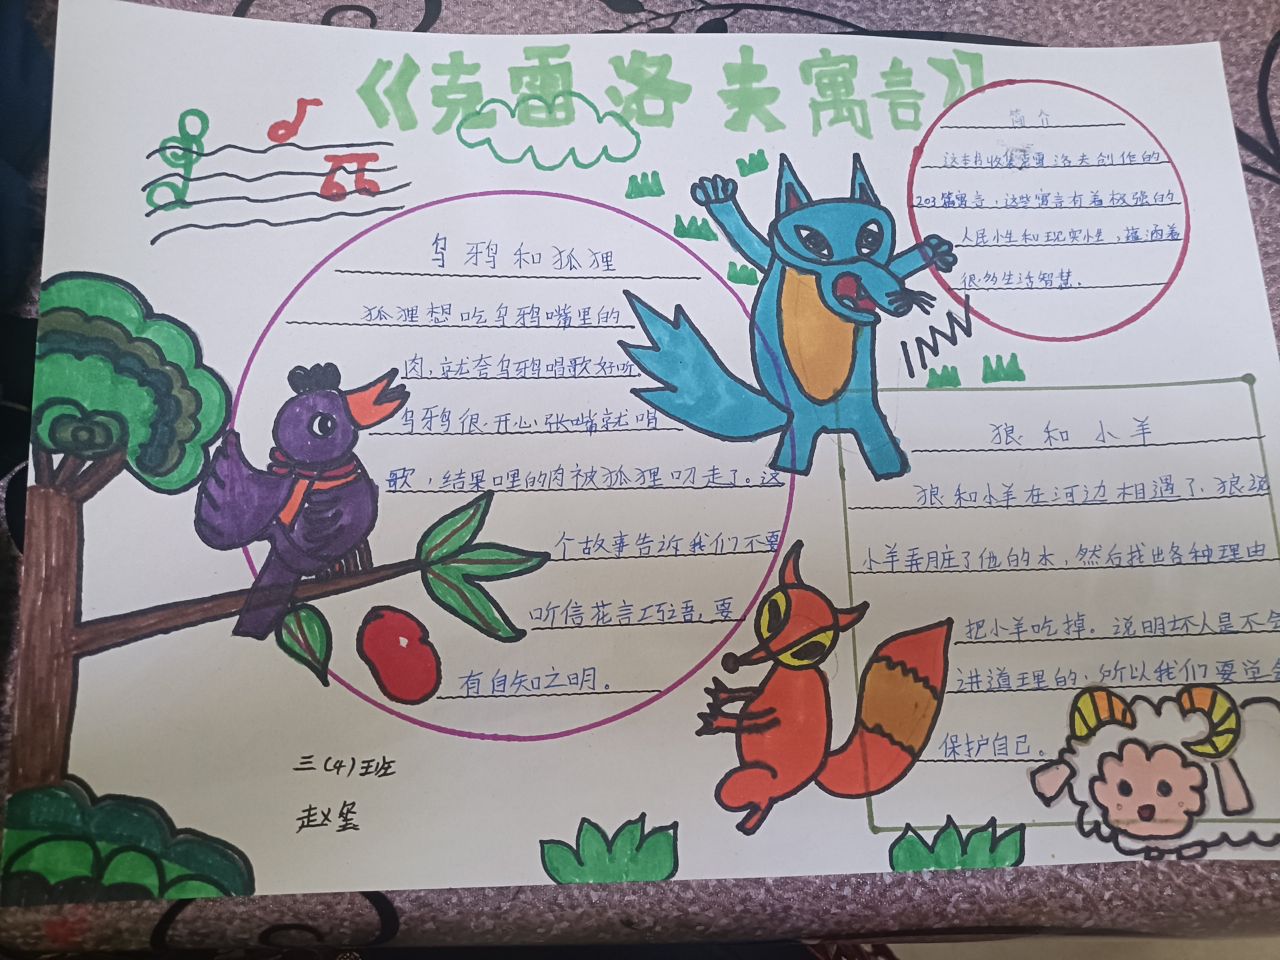 《克雷洛夫寓言》
简介
这本书收集克雷洛夫创作的
203篇寓言，这些寓言有着极强的
人民性和现实性，蕴涵着
很多生活智慧.
乌鸦和狐狸
狐狸想吃乌鸦嘴里的
肉，就夸乌鸦唱歌好听.
乌鸦很开心，张嘴就唱
歌，结果哩的肉被狐狸叼走了。这
个故事告诉我们不要
听信花言巧语，要
有自知之明。
狼和小羊
狼和小羊在河边相遇了、狼说
小羊弄脏了他的水，然后找出各种理由
把小羊吃掉。说明坏人是不会
讲道理的，所以我们要学会
保护自己。
三(4)班
赵玺